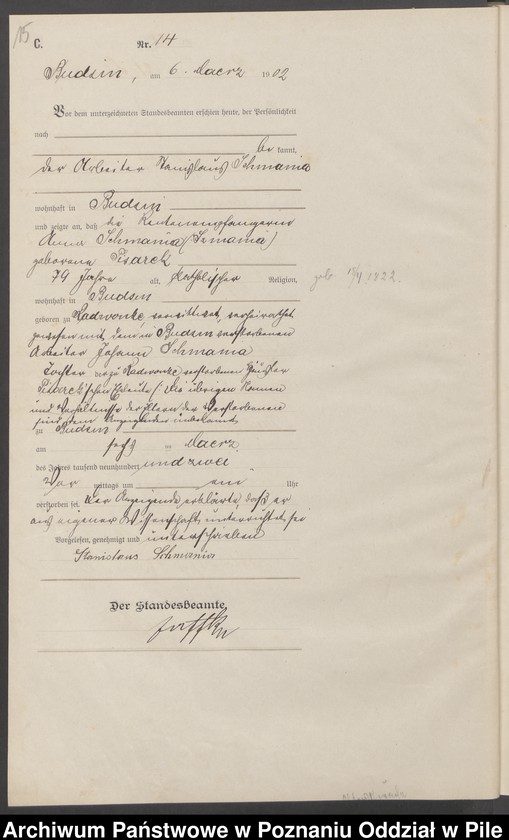 15
C.
Nr. 14
Budsin, am 6. Maerz 1902
Vor dem unterzeichneten Standesbeamten erschien heute, der Persönlichkeit
nach
be kannt,
der Arbeiter Stanislaus Schmania
wohnhaft in Budsin
und zeigte an, daß die Rentenempfängerin
Anna Schmania (Smania)
geborene Pisarek
79 Jahre alt, katholischer Religion,
geb. 17/4 1822.
wohnhaft in Budsin
geboren zu Radwonke, verwittwet, verheirathet
gewesen mit dem in Budsin verstorbenen
Arbeiter Johann Schmania
Tochter der zu Radwonke verstorbenen Häusler
Pisarek'schen Eheleute /: Die übrigen Namen
und Verhältnisse der Eltern der Verstorbenen
sind dem Anzeigenden unbekannt
zu Budsin
am sechs ten Maerz
des Jahres tausend neunhundert und zwei
Vor mittags um ein Uhr
verstorben sei. Der Anzeigende erklärte, daß er
aus eigener Wissenschaft unterrichtet sei
Vorgelesen, genehmigt und unterschrieben
Stanislaus Schmania
Der Standesbeamte.
Archiwum Państwowe w Poznaniu Oddział w Pile